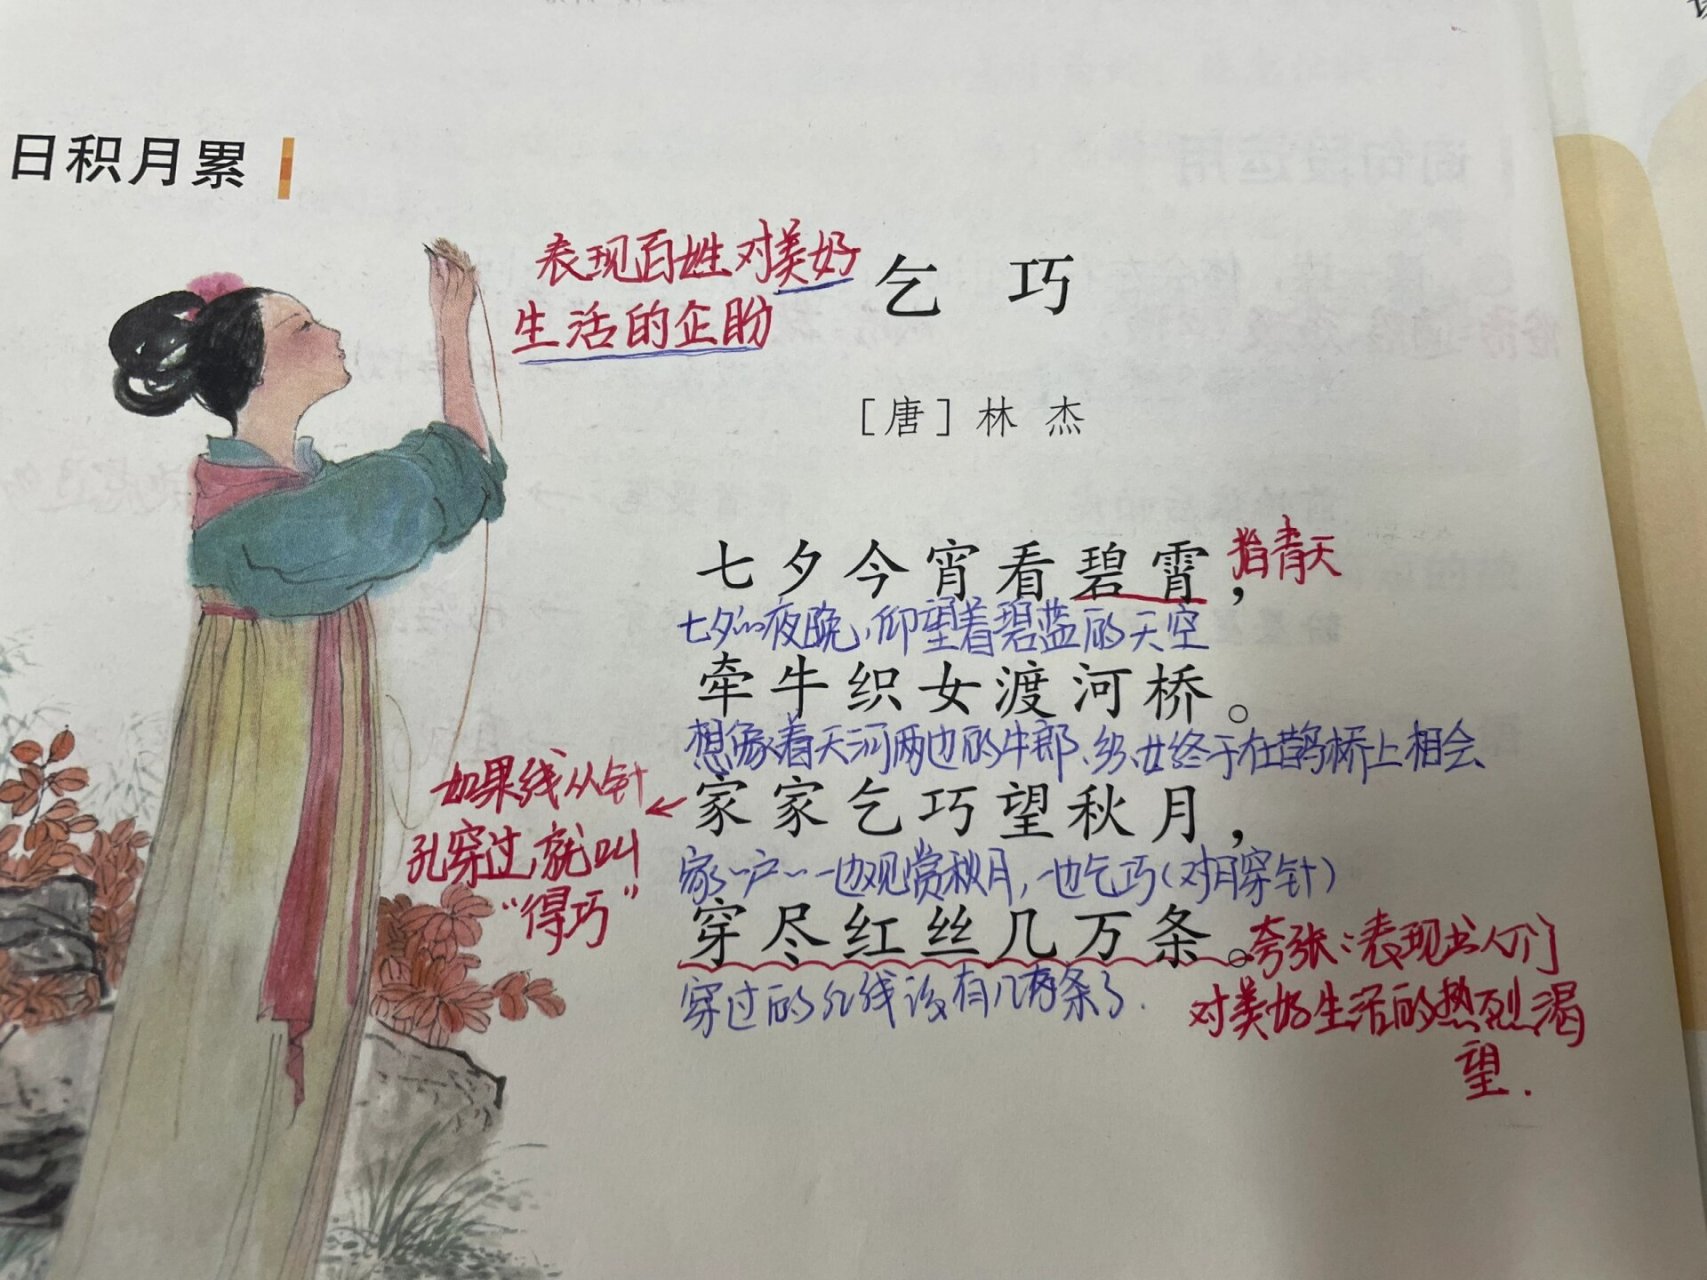 日积月累
表现百姓对美好
生活的企盼
乞巧
［唐］林杰
七夕今宵看碧霄，
指青天
七夕的夜晚，仰望着碧蓝的天空
牵牛织女渡河桥。
想象着天河两边的牛郎、织女终于在鹊桥上相会
如果线从针
孔穿过，就叫
“得巧”
家家乞巧望秋月，
家家户户一边观赏秋月，一边乞巧（对月穿针）
穿尽红丝几万条。
夸张：表现出人们
对美好生活的热烈渴
望．
穿过的红线该有几万条了．